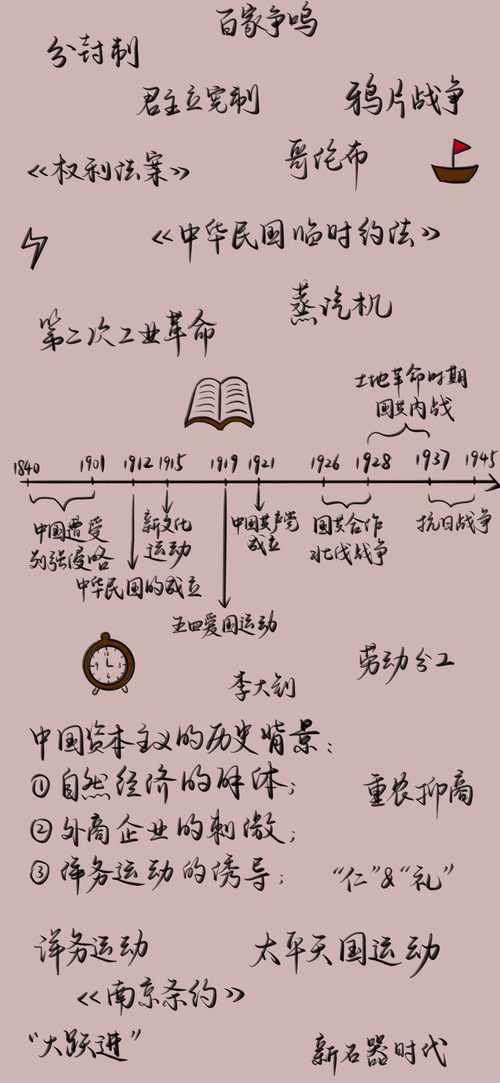 百家争鸣
分封制
君主立宪制
鸦片战争
哥伦布
《权利法案》
《中华民国临时约法》
蒸汽机
第二次工业革命
土地革命时期
国共内战
1840 1901 1912 1915 1919 1921 1926 1928 1937 1945
中国遭受
列强侵略
中华民国的成立
新文化
运动
五四爱国运动
中国共产党
成立
国共合作
北伐战争
抗日战争
劳动分工
李大钊
中国资本主义的历史背景:
①自然经济的解体;
重农抑商
②外商企业的刺激;
③洋务运动的诱导;
“仁”&“礼”
洋务运动
太平天国运动
《南京条约》
“大跃进”
新石器时代